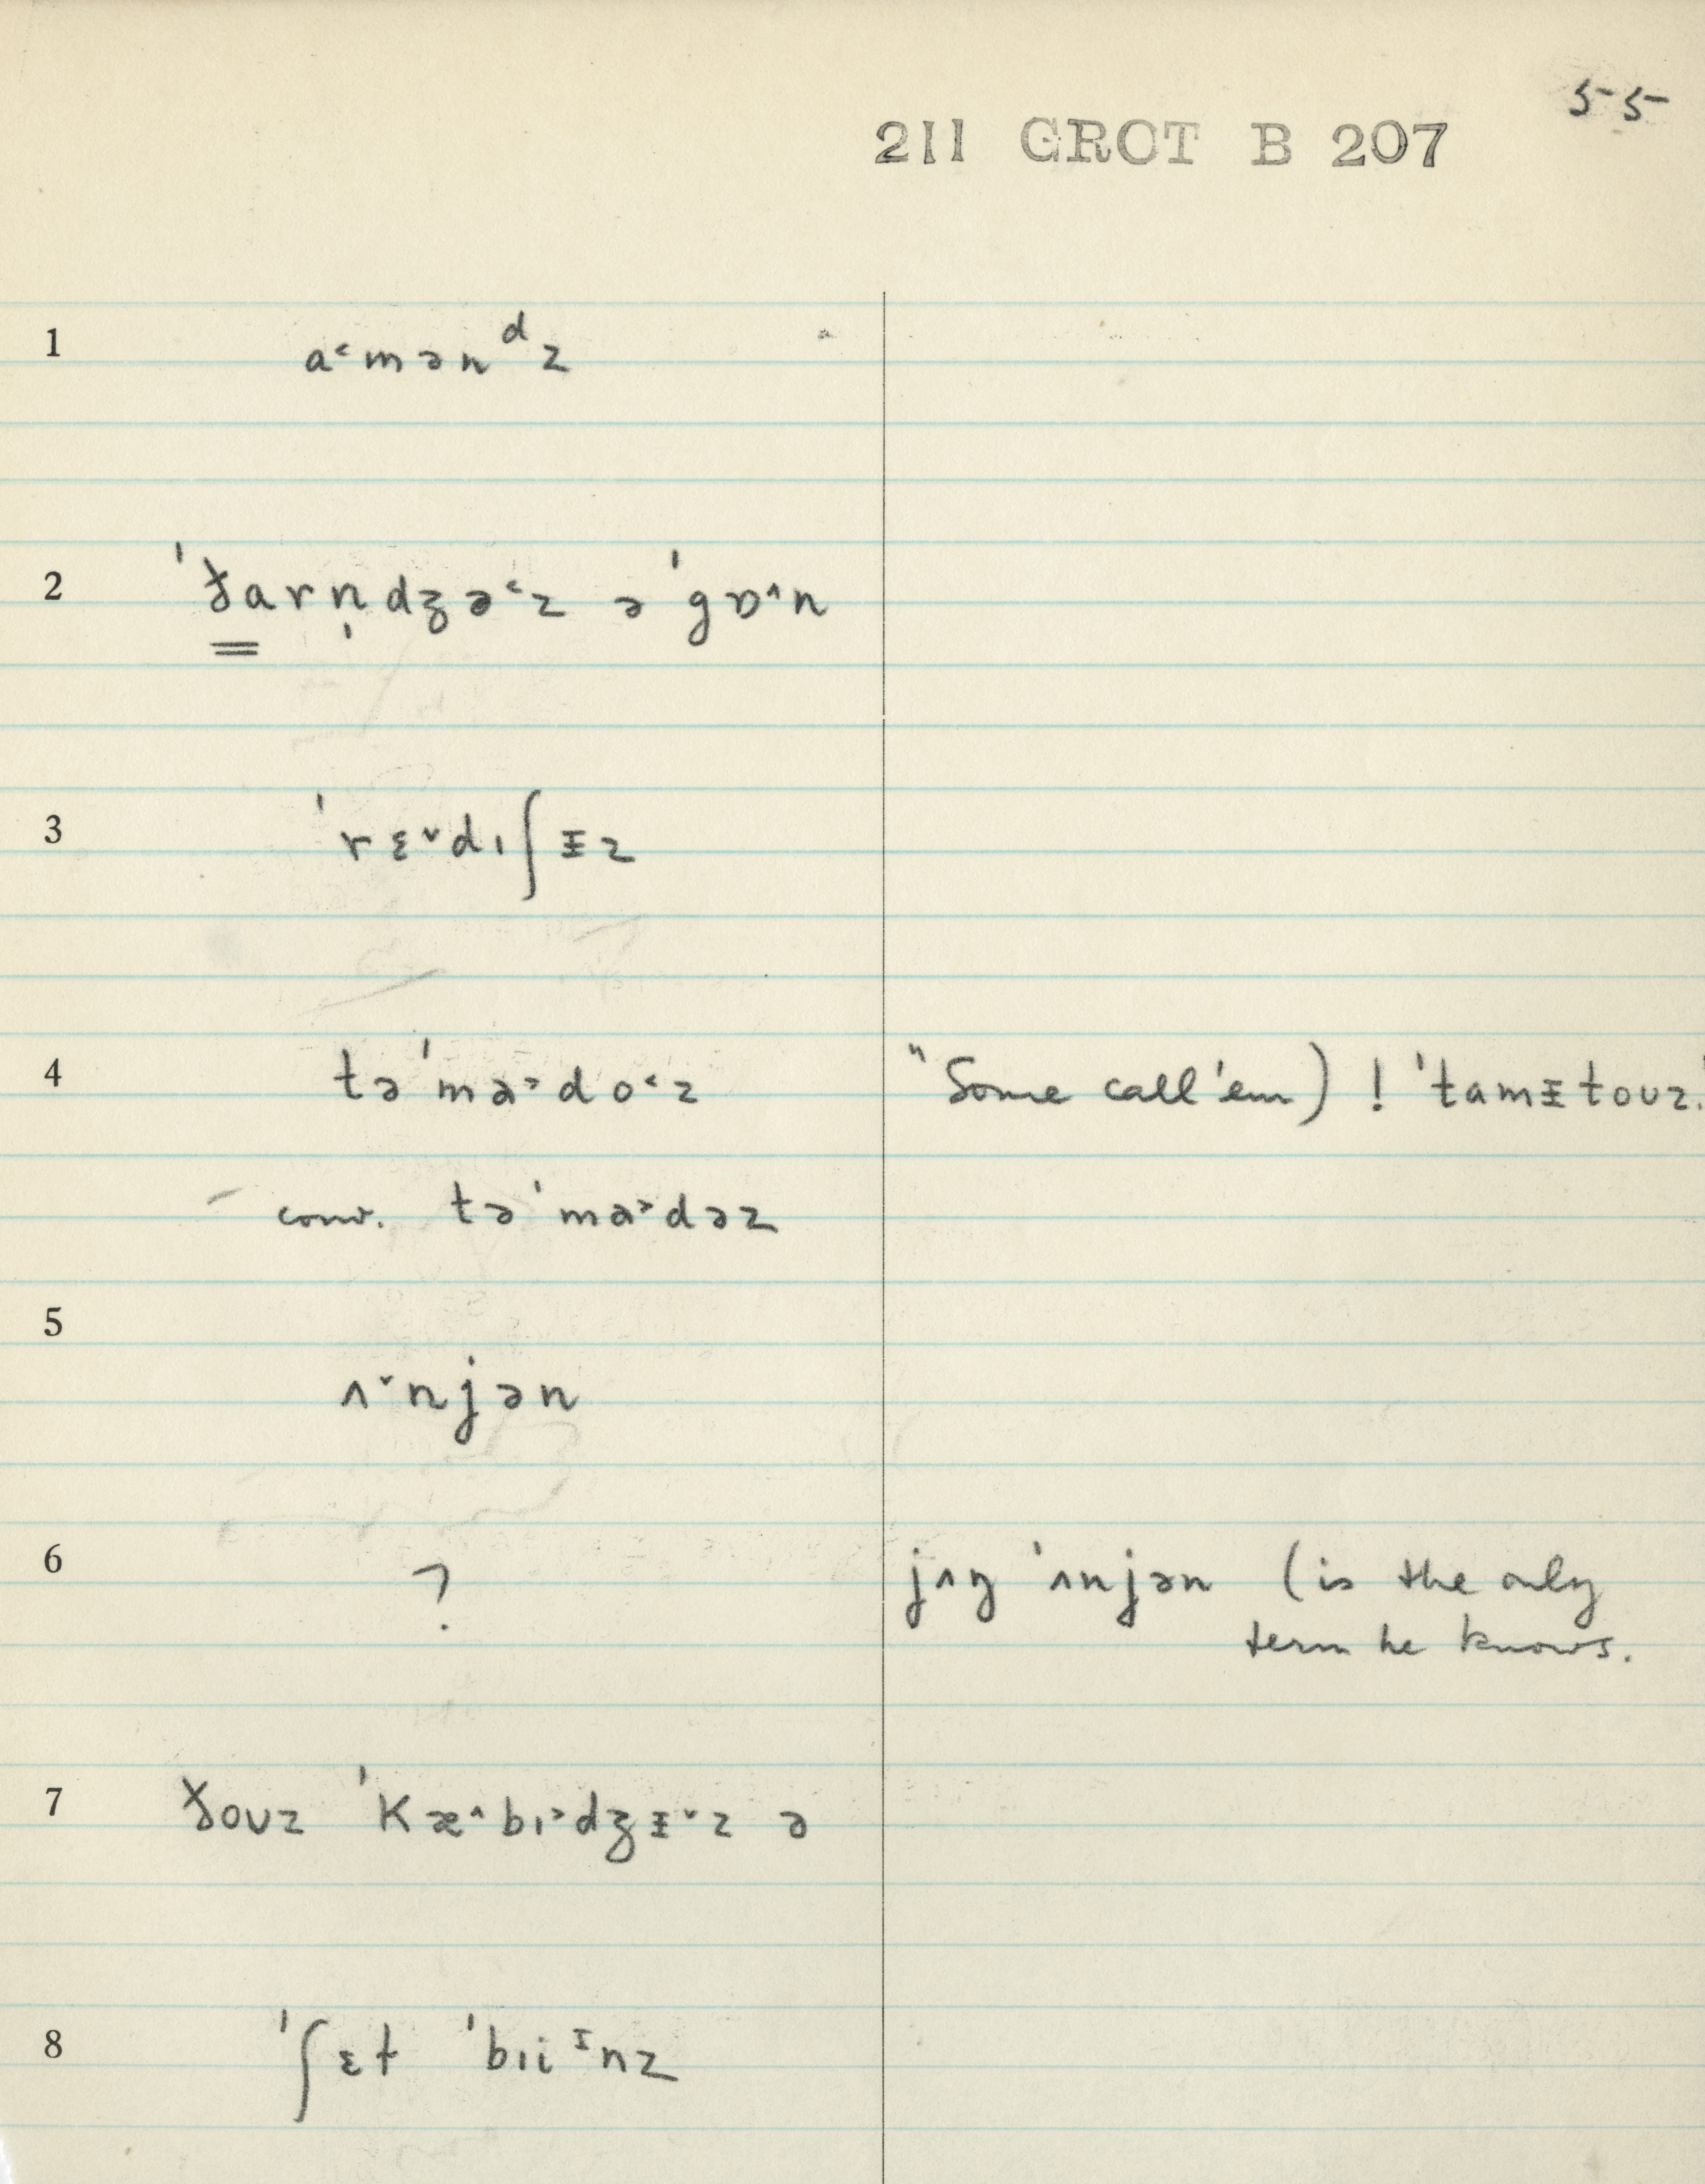 55
211 GROT B 207
1 a˂mənᵈz
2 ˈðarn̩dʒə˂z əˈgɒ˄n
3 ˈrɛ˅dɪʃᵻz
4 təˈma˃do˂z "Some call'em) ! ˈtamᵻtoʊz."
conv. təˈma˃dəz
5 ʌ˅njən
6 ? jʌŋ ˈʌnjən (is the only
term he knows.
7 ðoʊz ˈkæ˄bɪ˃dʒᵻ˅z ə
8 ˈʃɛt ˈbɪiᶦnz